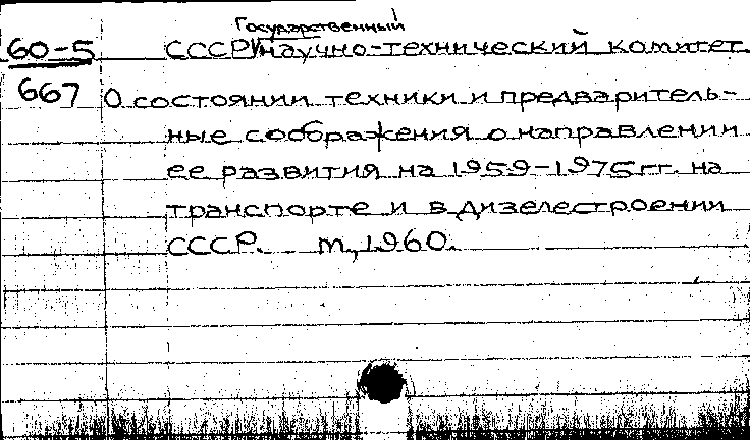 Государственный
60-5 СССР научно-технический комитет
667 О состоянии техники и предваритель-
ные соображения о направлении
ее развития на 1959-1975 гг. на
транспорте и в дизелестроении
СССР. М., 1960.